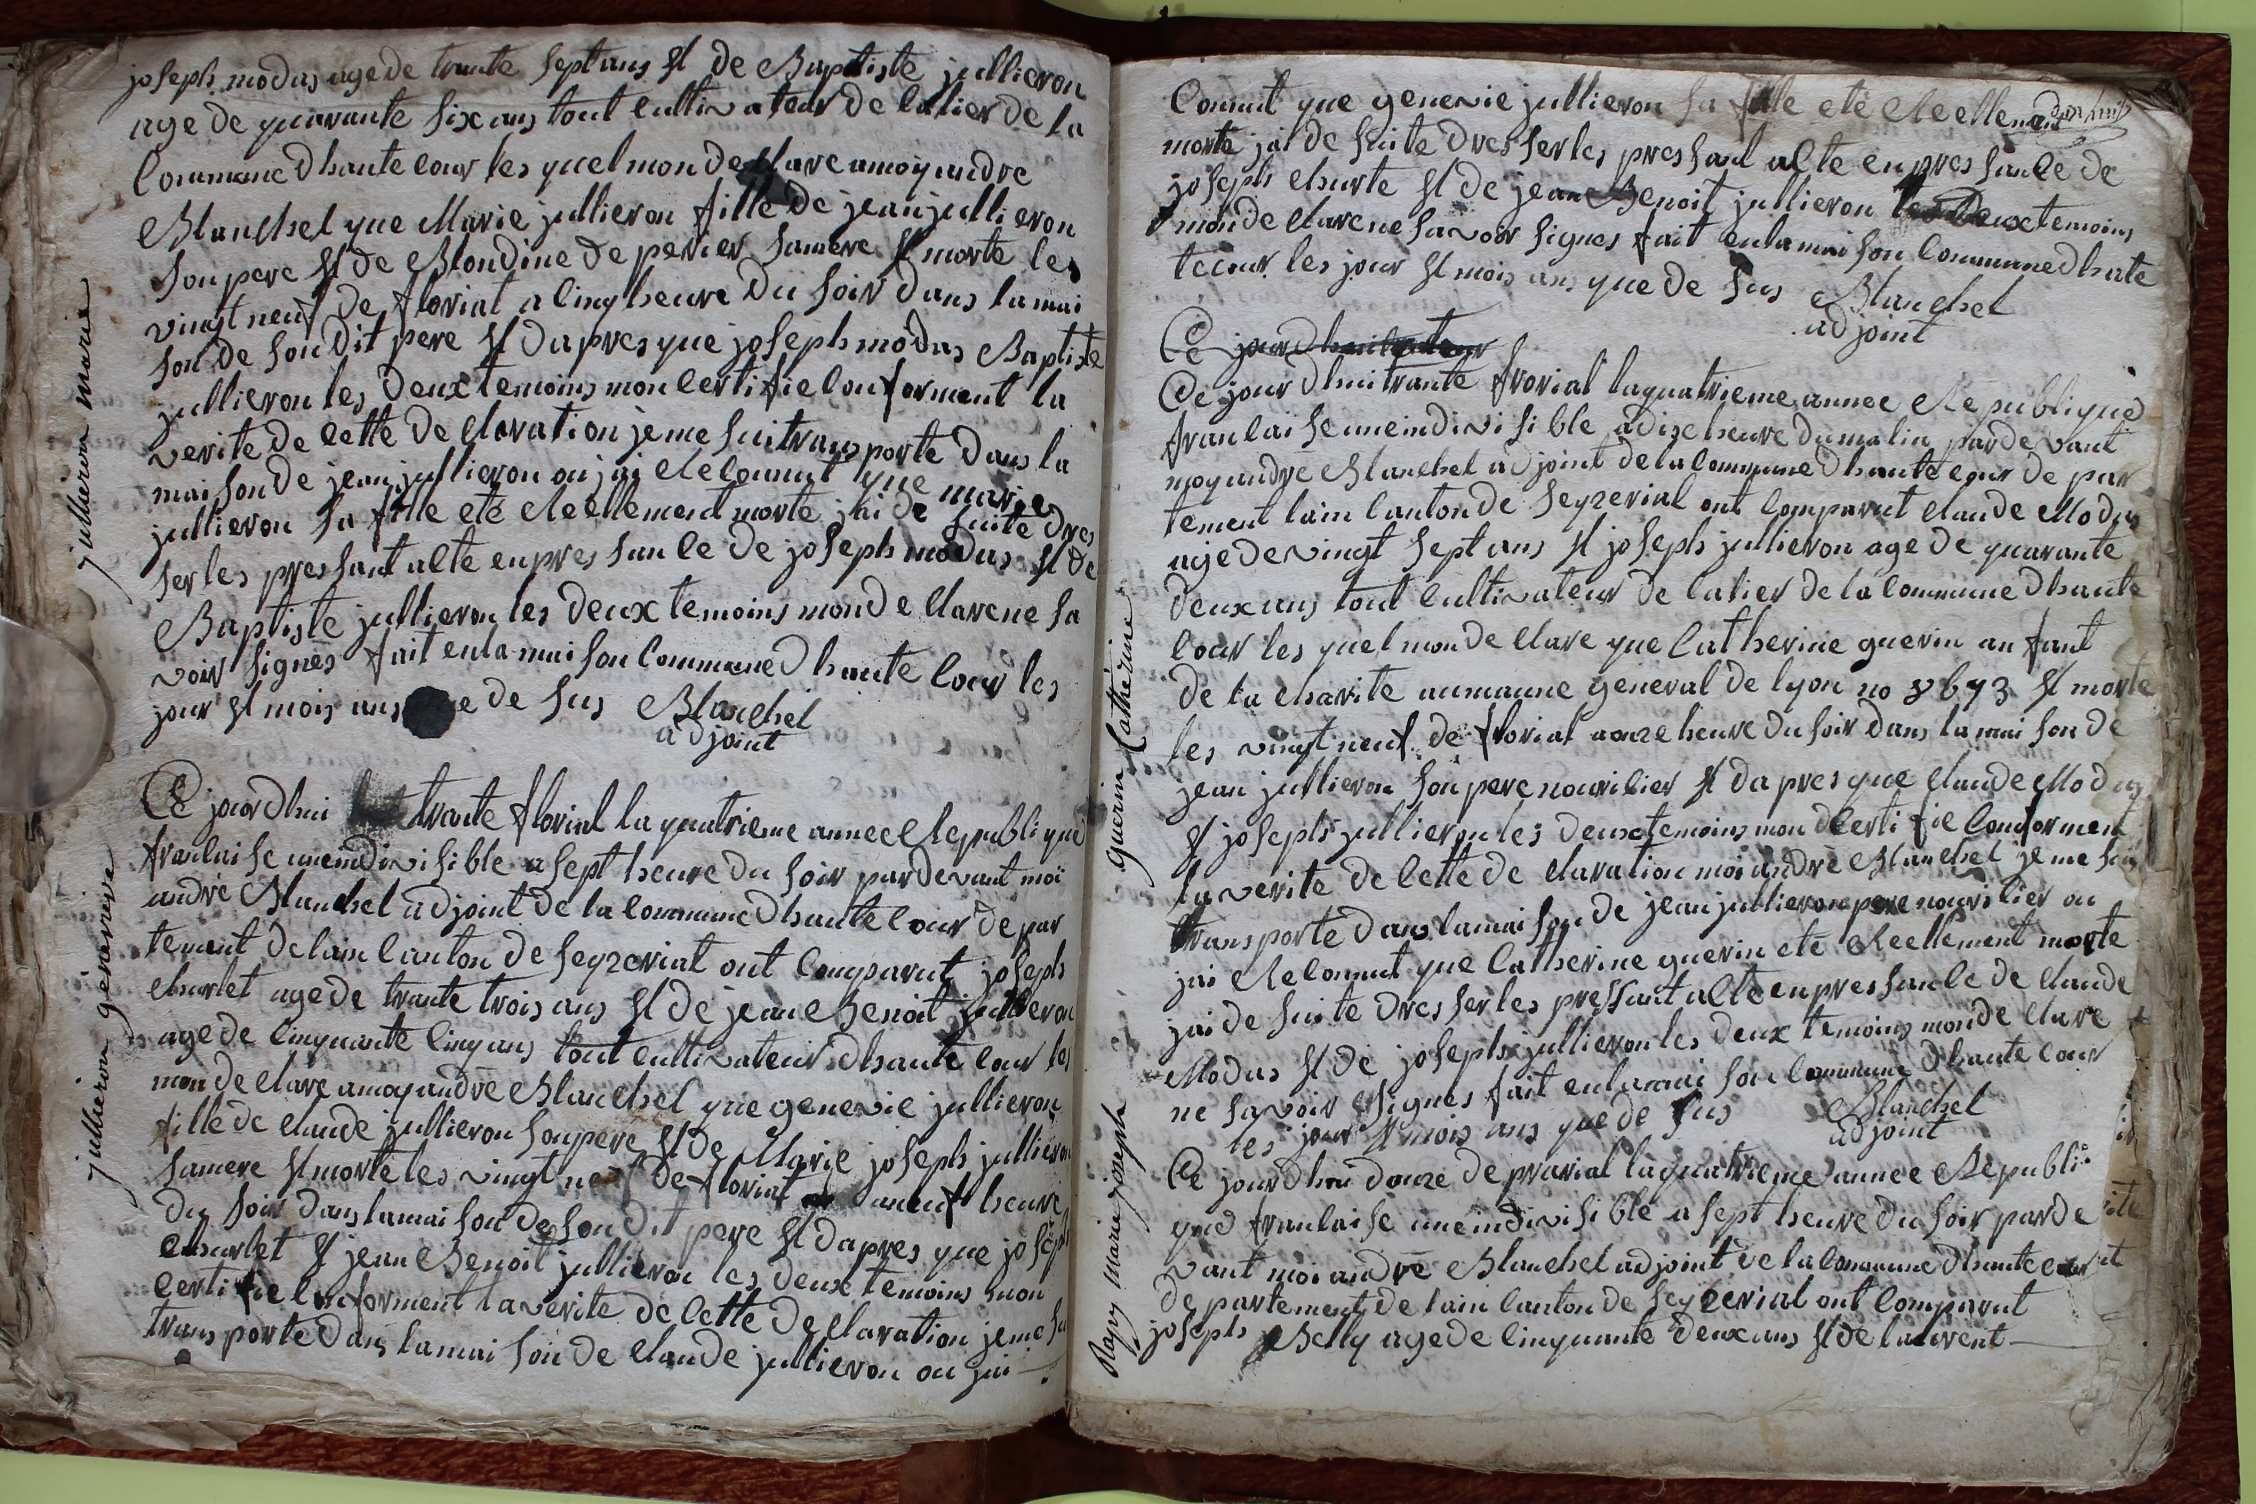 joseph modas age de trante sept ans st de Baptiste jullieron
age de quarante six ans tout cultivateur de latier de la
Commune dhaute cour les quel mon declare a moy andre
Blanchet que Marie jullieron fille de jean jullieron
son pere st de Blondine de perier sa mere st morte les
vingt neuf de florial a cinq heure du soir dans la mai
son de son dit pere st dapres que joseph modas Baptiste
jullieron les deux temoins mon certifie conforment la
verite de cette declaration je me sui transporte dans la
maison de jean jullieron ou jai Reconnut que marie
jullieron sa fille ete Reellement morte jai de suite dres
ser les pressant acte en pressance de joseph modas st de
Baptiste jullieron les deux temoins mon declare ne sa
voir signes fait en la maison commune dhaute cour les
jour st mois ans que de sus Blanchet
adjoint
jullieron marie
Ce jourdhui trante florial la quatrieme annee Republique
francaise une indivisible a sept heure du soir pardevant moi
andre Blanchet adjoint de la commune dhaute cour depar
tement de lain canton de seyzeriat ont comparut joseph
charlet age de trante trois ans st de jean Benoit jullieron
age de cinquante cinq ans tout cultivateur dhaute cour les
mon declare a moy andre Blanchet que genevie jullieron
fille de claude jullieron son pere st de Marie joseph jullieron
sa mere st morte les vingt neuf de florial a neuf heure
du soir dans la maison de son dit pere st dapres que joseph
charlet st jean Benoit jullieron les deux temoins mon
certifie conforment la verite de cette declaration je me sui
transporte dans la maison de claude jullieron ou jai
jullieron génevieve
Connut que genevie jullieron sa fille ete Reellement
morte jai de suite dresser les pressant acte en pressance de
joseph charte st de jean Benoit jullieron les deux temoins
mon declare ne savoir signes fait en la maison commune dhate
tecour les jour st mois ans que de sus Blanchet
adjoint
Ce jourdhui
Ce jourdhui trante frorial la quatrieme annee Republique
francaise une indivisible a dix heure du matin pardevant
moy andre Blanchet adjoint de la commune dhaute cour depar
tement lain canton de seyzerial ont comparut claude Modas
age de vingt sept ans st joseph jullieron age de quarante
deux ans tout cultivateur de latier de la commune dhaute
cour les quel mon declare que Catherine guerin anfant
de la charite aumaune general de lyon no st morte
les vingt neuf de florial a onze heure du soir dans la maison de
jean jullieron son pere nouricier st dapres que claude Modas
st joseph jullieron les deux temoins mon dcertifie conforment
la verite de cette declaration moi andre Blanchet je me sui
transporte dans la maison de jean jullieron pere nouricier ou
jai Reconnut que Catherine guerin ete Reellement morte
jai de suite dresser les pressant acte en pressance de claude
Modas st de joseph jullieron les deux temoins mon declare
ne savoir signes fait en la maison commune dhaute cour
les jour st mois ans que de sus Blanchet
adjoint
guerin Cathérine
Ce jourdhui douze de prarial la quatrieme annee Republi
que francaise une indivisible a sept heure du soir parde
vant moi andre Blanchet adjoint de la commune dhaute cour
departement de lain canton de seyzerial ont comparut
joseph Belly age de cinquante deux ans st de laurent
Rapy marie joseph